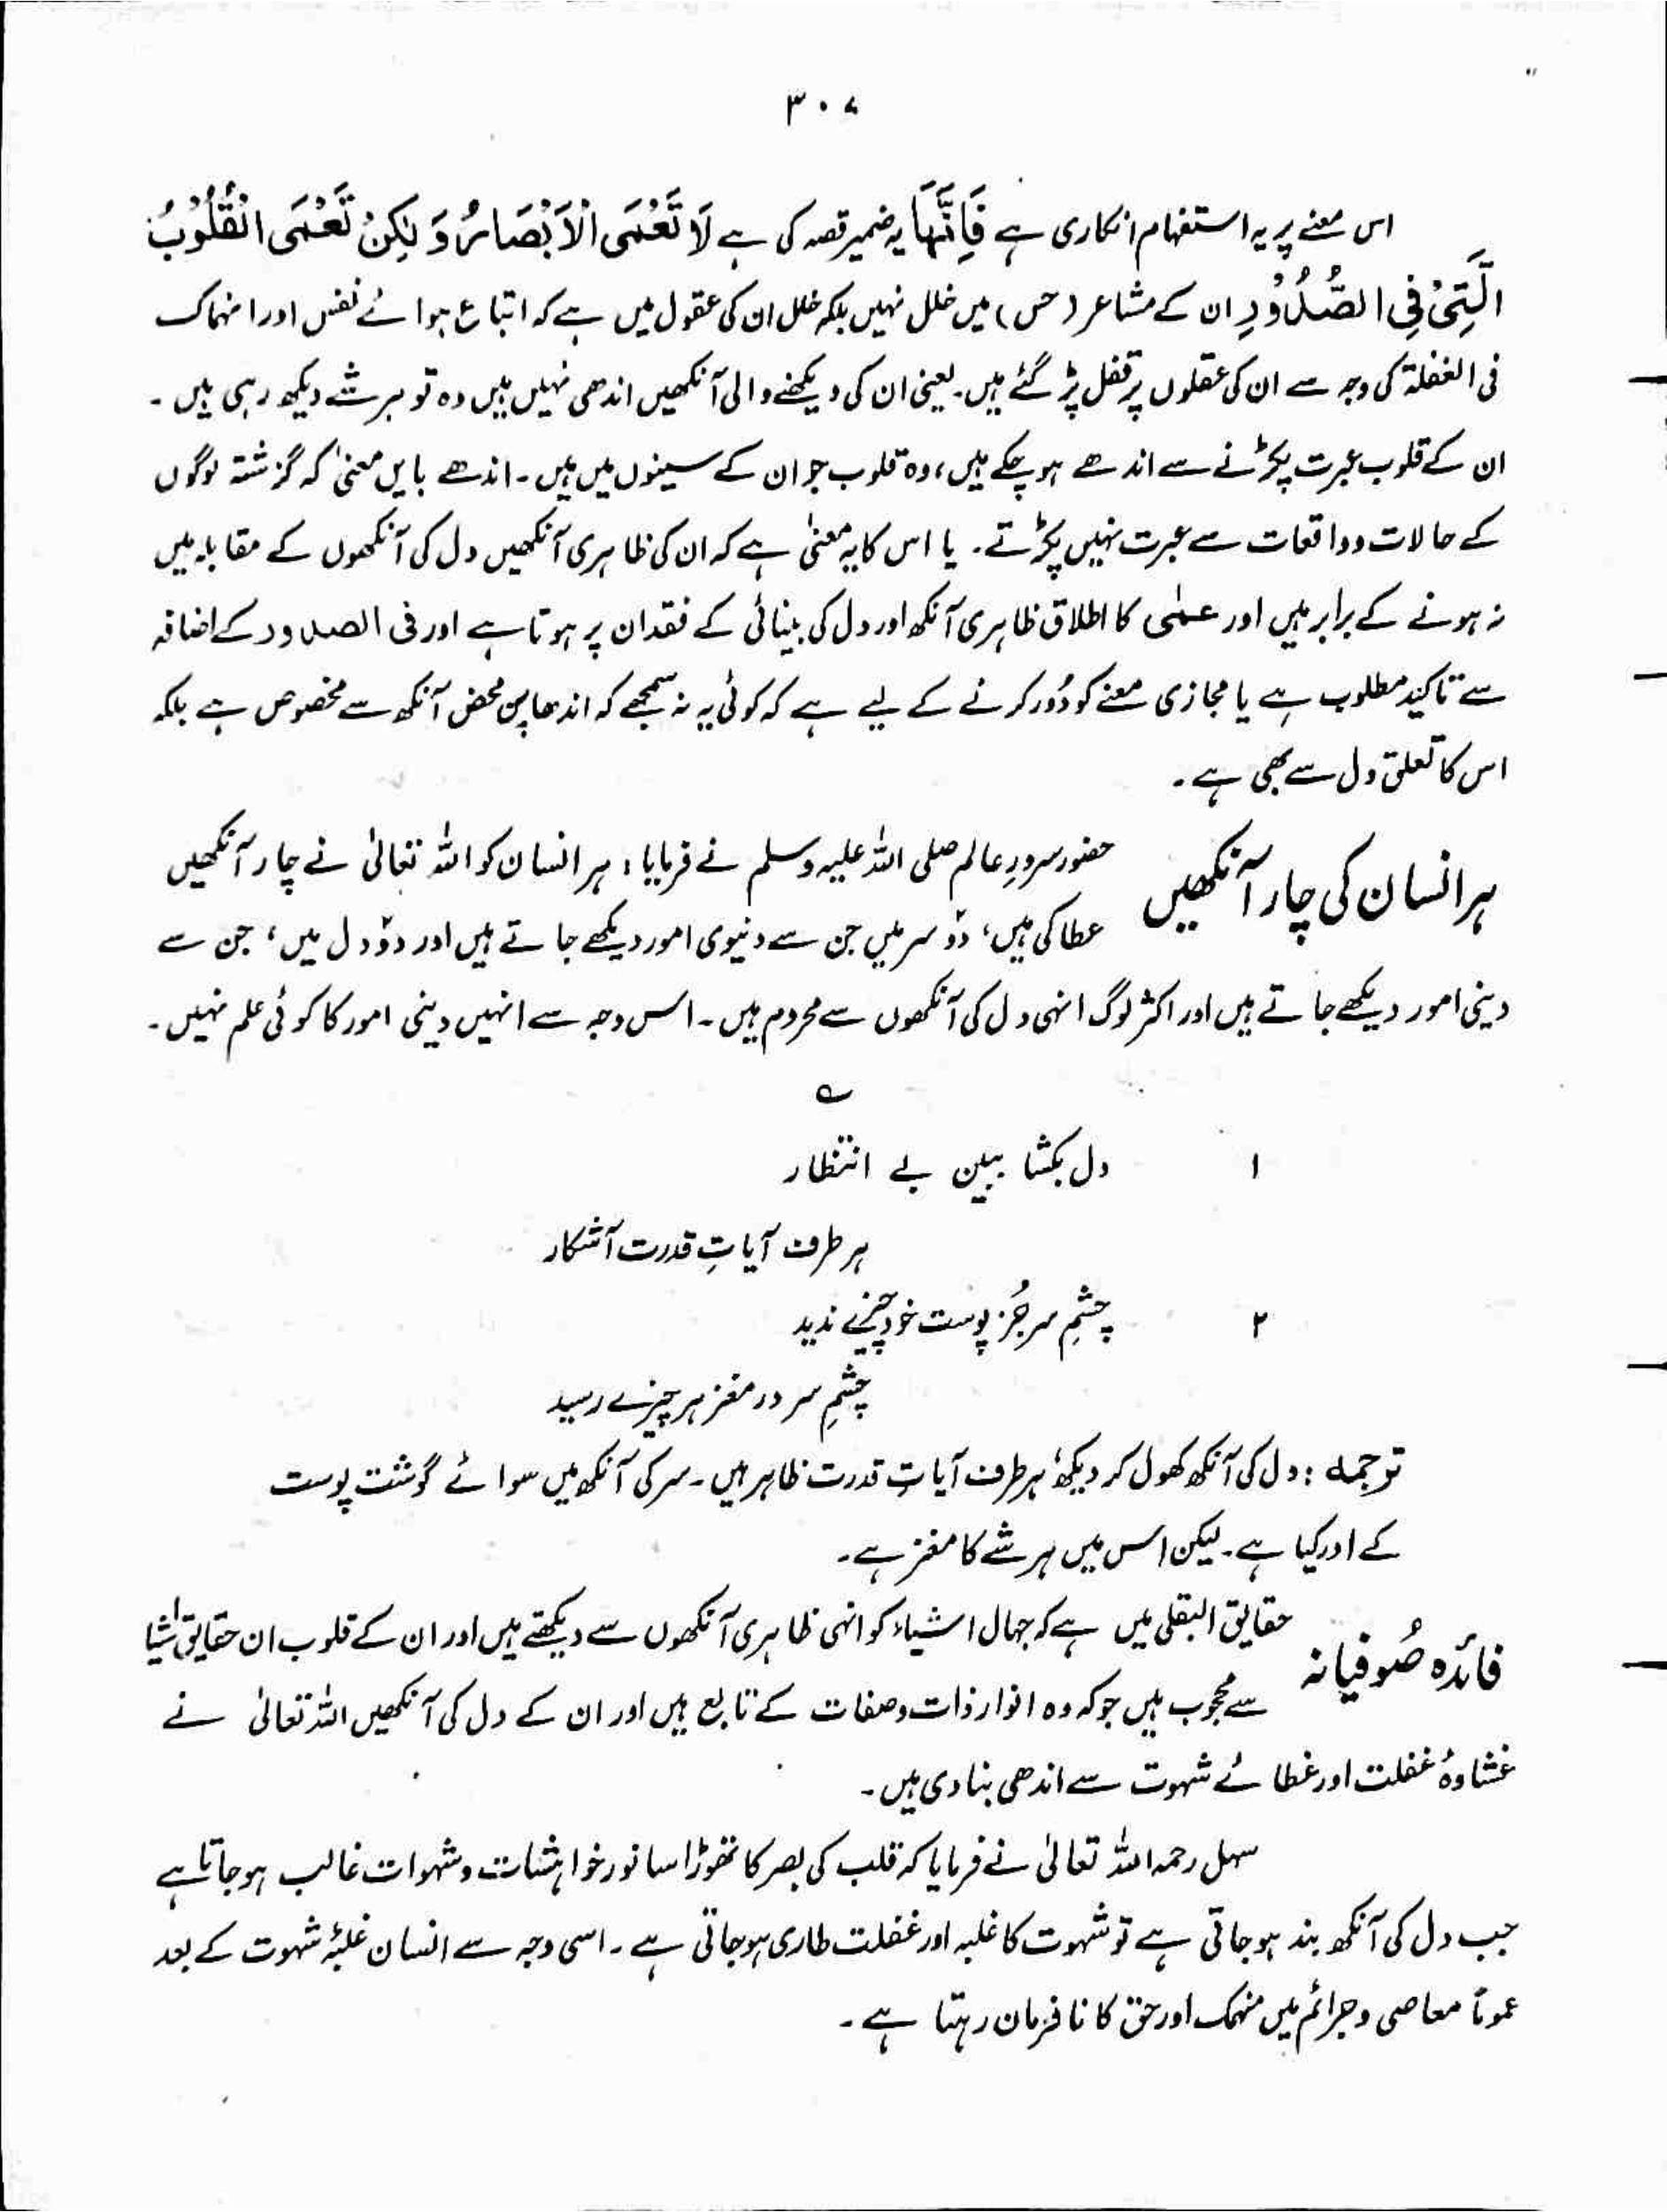 ۳۰۷
اس معنے پر یہ استفہام انکاری ہے فَاِنَّهَا یہ ضمیر قصہ کی ہے لَا تَعْمَى الْاَبْصَارُ وَ لٰكِنْ تَعْمَى الْقُلُوْبُ
الَّتِیْ فِی الصُّدُوْرِ ان کے مشاعر (حس) میں خلل نہیں بلکہ خلل ان کی عقول میں ہے کہ اتباع ہوائے نفس اور انہماک
فی الغفلۃ کی وجہ سے ان کی عقلوں پر قفل پڑ گئے ہیں۔ یعنی ان کی دیکھنے والی آنکھیں اندھی نہیں ہیں وہ تو ہر شے دیکھ رہی ہیں۔
ان کے قلوب عبرت پکڑنے سے اندھے ہو چکے ہیں، وہ قلوب جو ان کے سینوں میں ہیں۔ اندھے بایں معنیٰ کہ گزشتہ لوگوں
کے حالات و واقعات سے عبرت نہیں پکڑتے۔ یا اس کا یہ معنیٰ ہے کہ ان کی ظاہری آنکھیں دل کی آنکھوں کے مقابلہ میں
نہ ہونے کے برابر ہیں اور عمٰی کا اطلاق ظاہری آنکھ اور دل کی بینائی کے فقدان پر ہوتا ہے اور فی الصدور کے اضافہ
سے تاکید مطلوب ہے یا مجازی معنے کو دُور کرنے کے لیے ہے کہ کوئی یہ نہ سمجھے کہ اندھاپن محض آنکھ سے مخصوص ہے بلکہ
اس کا تعلق دل سے بھی ہے۔
ہر انسان کی چار آنکھیں
حضور سرورِ عالم صلی اللہ علیہ وسلم نے فرمایا: ہر انسان کو اللہ تعالیٰ نے چار آنکھیں
عطا کی ہیں، دو سر میں جن سے دنیوی امور دیکھے جاتے ہیں اور دو دل میں، جن سے
دینی امور دیکھے جاتے ہیں اور اکثر لوگ انہی دل کی آنکھوں سے محروم ہیں۔ اس وجہ سے انہیں دینی امور کا کوئی علم نہیں۔
؎
۱ دل بکشا ببین بے انتظار
ہر طرف آیاتِ قدرت آشکار
۲ چشمِ سر جُز پوست خود چیزے ندید
چشمِ سر در مغز ہر چیزے رسید
ترجمہ: دل کی آنکھ کھول کر دیکھ، ہر طرف آیاتِ قدرت ظاہر ہیں۔ سر کی آنکھ میں سوائے گوشت پوست
کے اور کیا ہے۔ لیکن اس میں ہر شے کا مغز ہے۔
فائدہ صُوفیانہ
حقایق البقلی میں ہے کہ جہال اشیاء کو انہی ظاہری آنکھوں سے دیکھتے ہیں اور ان کے قلوب ان حقایق اشیا
سے محجوب ہیں جو کہ وہ انوار ذات و صفات کے تابع ہیں اور ان کے دل کی آنکھیں اللہ تعالیٰ نے
غشاوۂ غفلت اور غطائے شہوت سے اندھی بنا دی ہیں۔
سہل رحمہ اللہ تعالیٰ نے فرمایا کہ قلب کی بصر کا تھوڑا سا نور خواہشات و شہوات غالب ہو جاتا ہے
جب دل کی آنکھ بند ہو جاتی ہے تو شہوت کا غلبہ اور غفلت طاری ہو جاتی ہے۔ اسی وجہ سے انسان غلبۂ شہوت کے بعد
عموماً معاصی و جرائم میں منہمک اور حق کا نافرمان رہتا ہے۔